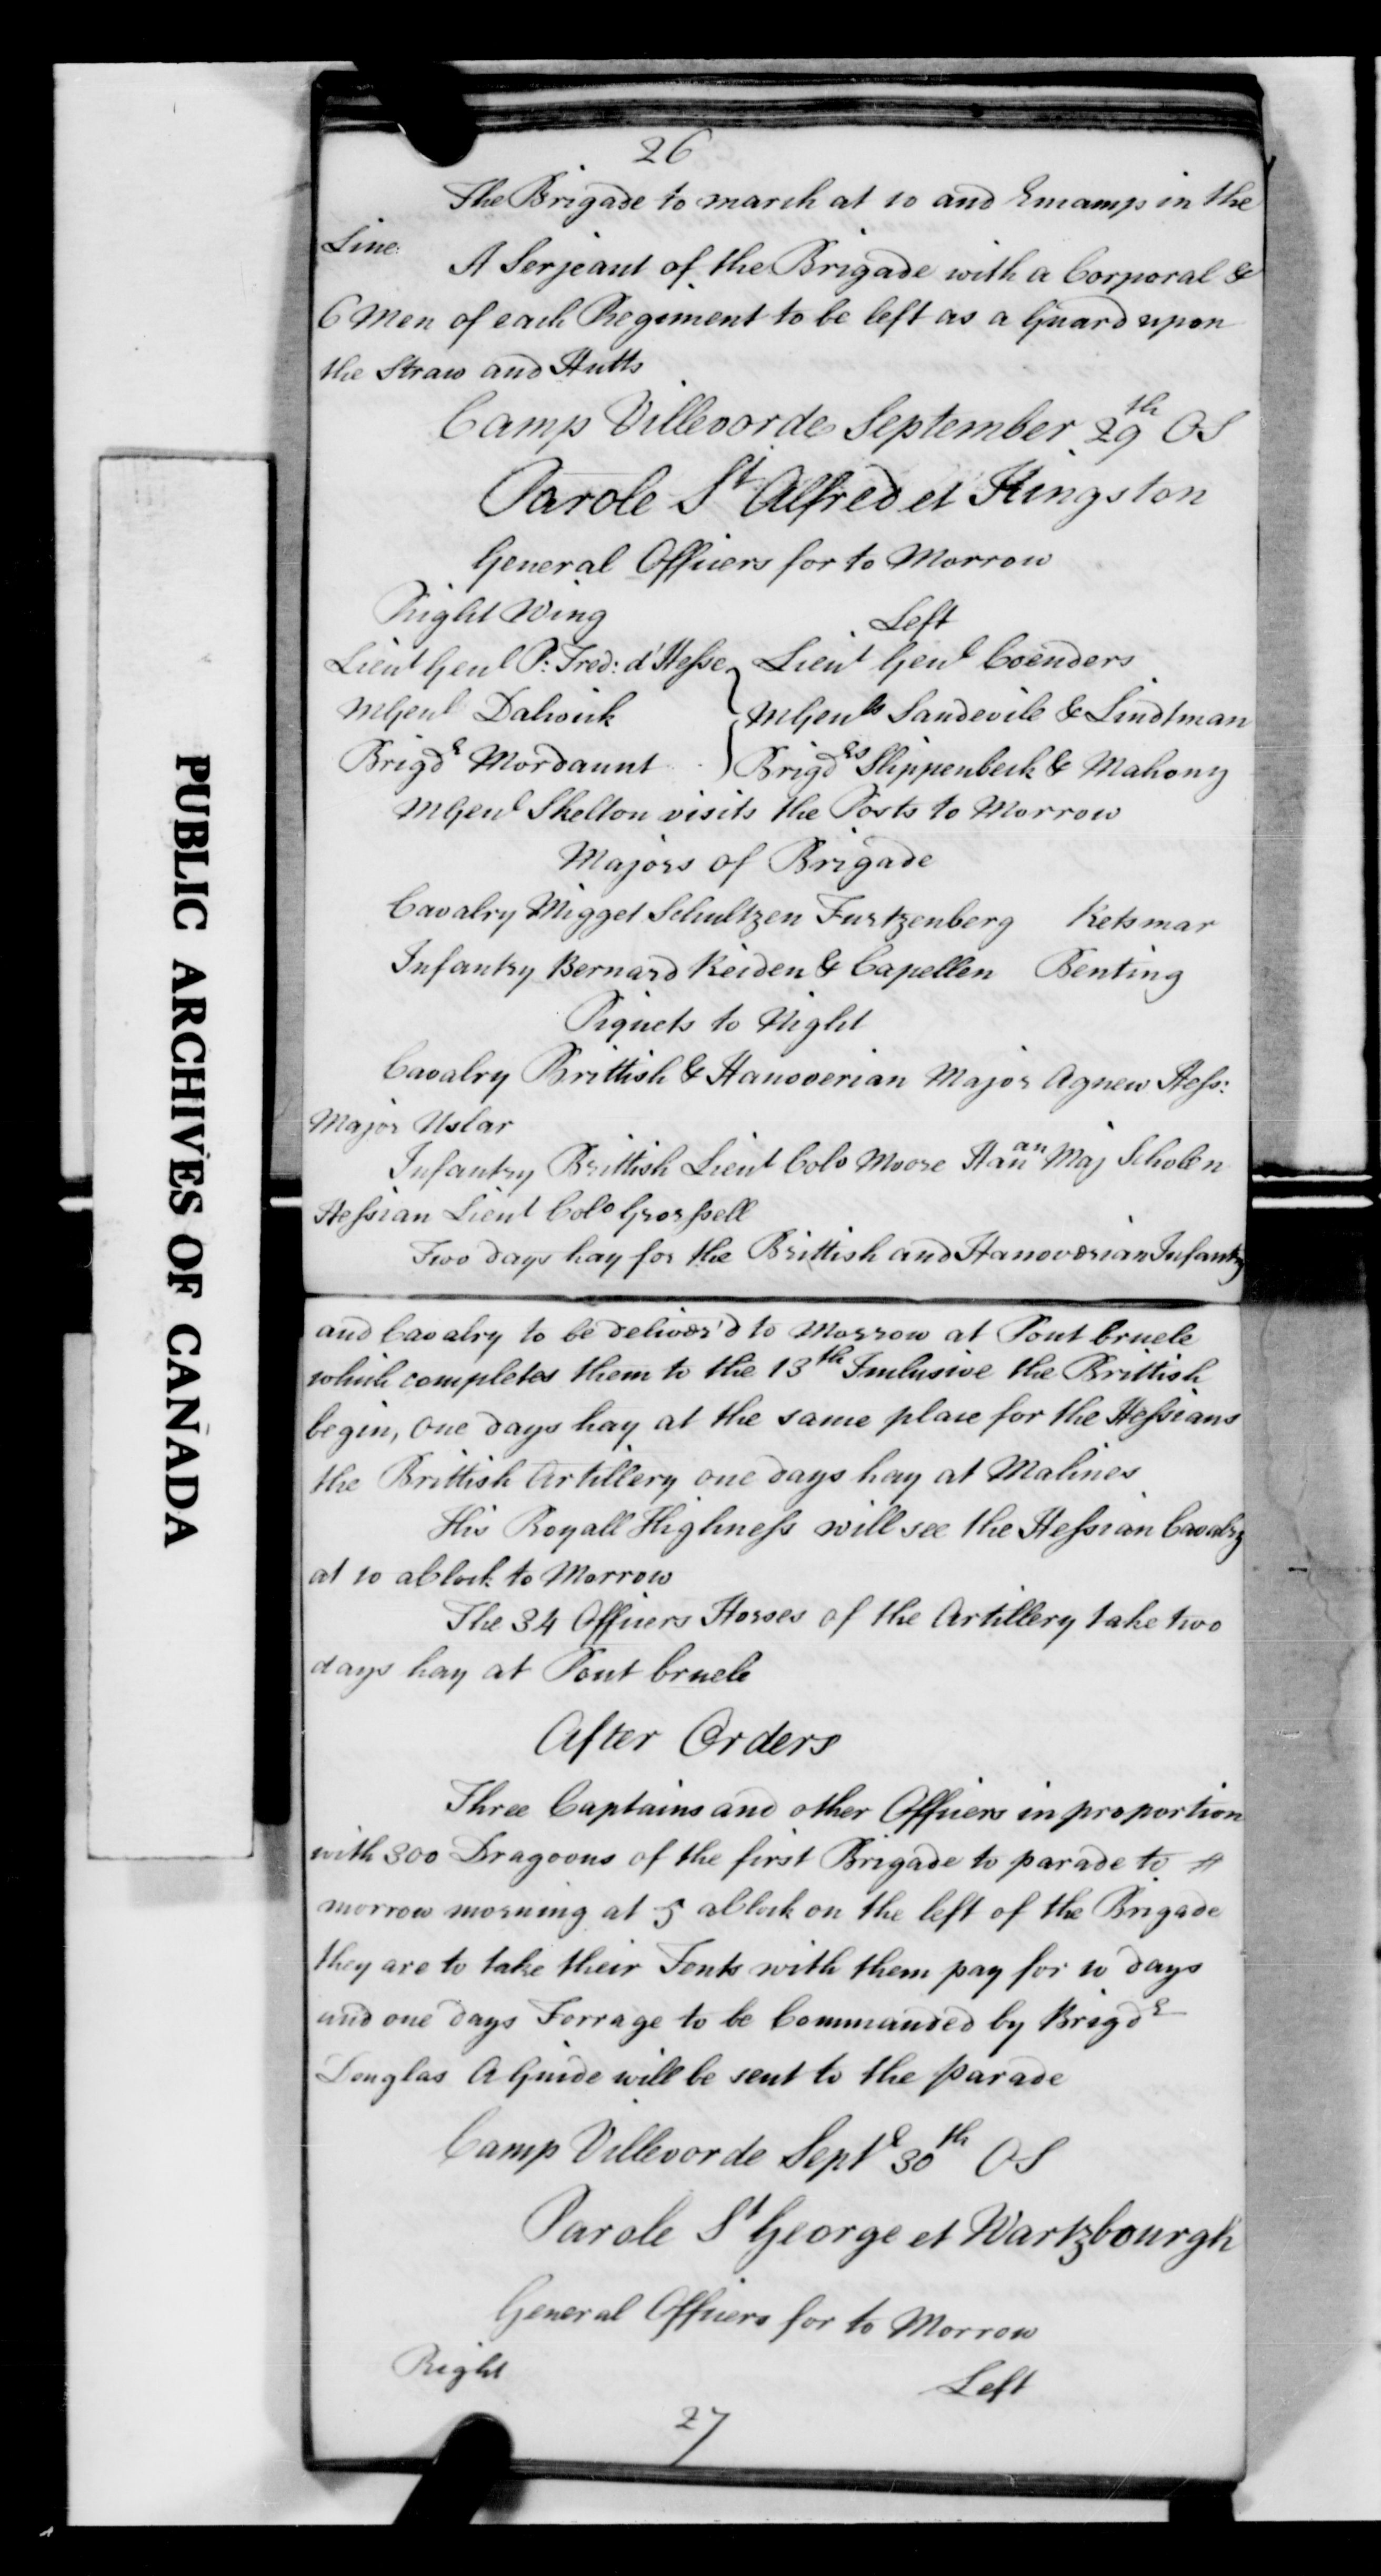 26
The Brigade to march at 10 and Encamp in the
Line.
A Serjeant of the Brigade with a Corporal &
6 Men of each Regiment to be left as a Guard upon
the Straw and Hutts
Camp Villevorde September 29th OS
Parole St Alfred et Kingston
General Officers for to Morrow
Right Wing Left
Lieut Genl P: Fred: d'Hesse Lieut Genl Coenders
MGenl Dalwick MGenls Sandevile & Lindtman
Brigdr Mordaunt Brigdrs Slippenbeck & Mahony
MGenl Skelton visits the Posts to Morrow
Majors of Brigade
Cavalry Migget Schultzen Furtzenberg Ketsmar
Infantry Bernard Keiden & Capellen Benting
Piquets to Night
Cavalry Brittish & Hanoverian Major Agnew Hess:
Major Uslar
Infantry Brittish Lieut Colo Moore Hanan Maj Scholen
Hessian Lieut Colo Grossell
Two days hay for the Brittish and Hanoverian Infantry
and Cavalry to be deliver'd to Morrow at Pont bruele
which completes them to the 13th Inclusive the Brittish
begin, one days hay at the same place for the Hessians
the Brittish Artillery one days hay at Malines
His Royall Highness will see the Hessian Cavalry
at 10 aClock to Morrow
The 34 Officers Horses of the Artillery take two
days hay at Pont bruele
After Orders
Three Captains and other Officers in proportion
with 300 Dragoons of the first Brigade to parade to
morrow morning at 5 aClock on the left of the Brigade
they are to take their Tents with them pay for 10 days
and one days Forrage to be Commanded by Brigdr
Douglas A Guide will be sent to the parade
Camp Villevorde Septr 30th OS
Parole St George et Wartzbourgh
General Officers for to Morrow
Right Left
27
PUBLIC ARCHIVES OF CANADA